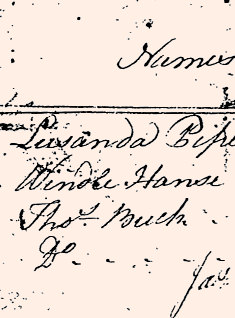 Names
Lusanda Pipe
Windle Hanse
Thos. Buck
Do
Jas